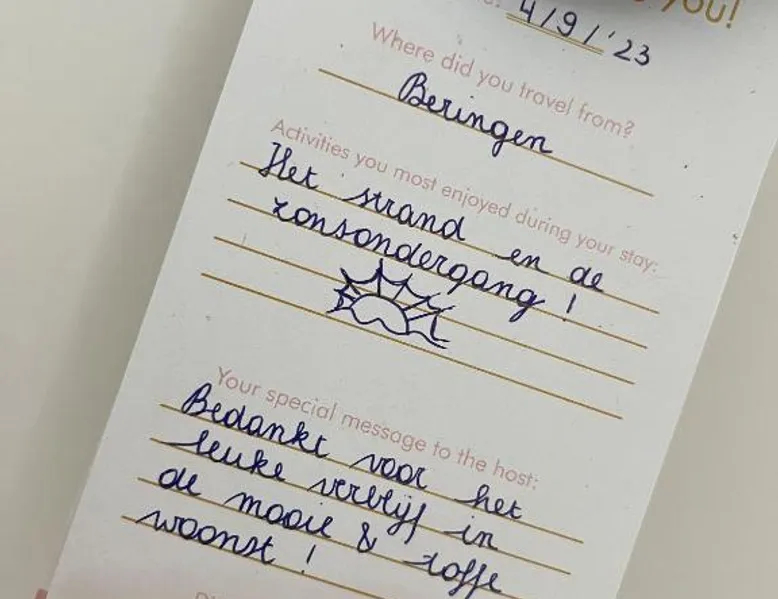 you!
4/9/'23
Where did you travel from?
Beringen
Activities you most enjoyed during your stay:
Het strand en de
zonsondergang!
Your special message to the host:
Bedankt voor het
leuke verblijf in
de mooie & toffe
woonst!